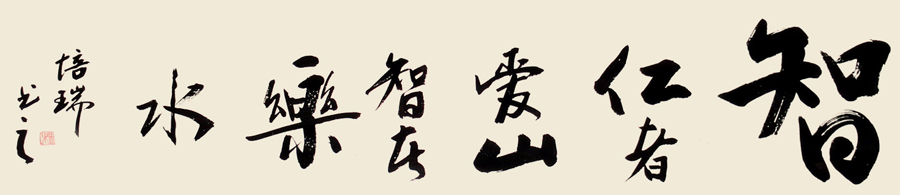 智
仁者
爱山
智者
樂
水
培瑞
书之